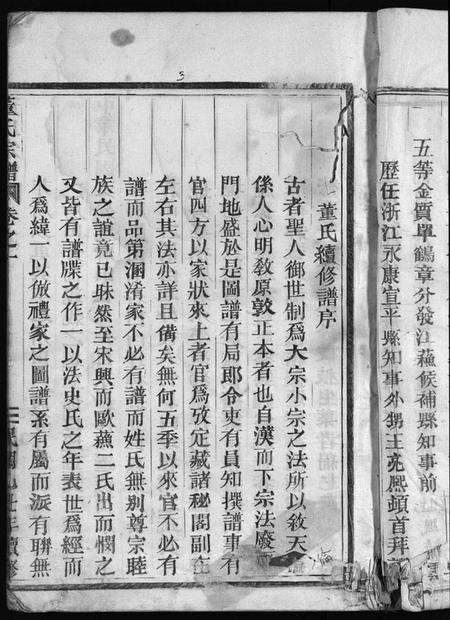 五等金質單鶴章分發江蘇候補縣知事前
歷任浙江永康宣平縣知事外甥王亮熙頓首拜
董氏續修譜序
古者聖人御世制爲大宗小宗之法所以敘天
係人心明敎原敦正本者也自漢而下宗法廢
門地盛於是圖譜有局郎令吏有員知撰譜事有
官四方以家狀來上者官爲攷定藏諸秘閣副在
左右其法亦詳且備矣無何五季以來官不必有
譜而品第溷淆家不必有譜而姓氏無别尊宗睦
族之誼竟已昧然至宋興而歐蘇二氏出而憫之
又皆有譜牒之作一以法史氏之年表世爲經而
人爲緯一以倣禮家之圖譜系有屬而派有聯無
董氏宗譜
卷之一